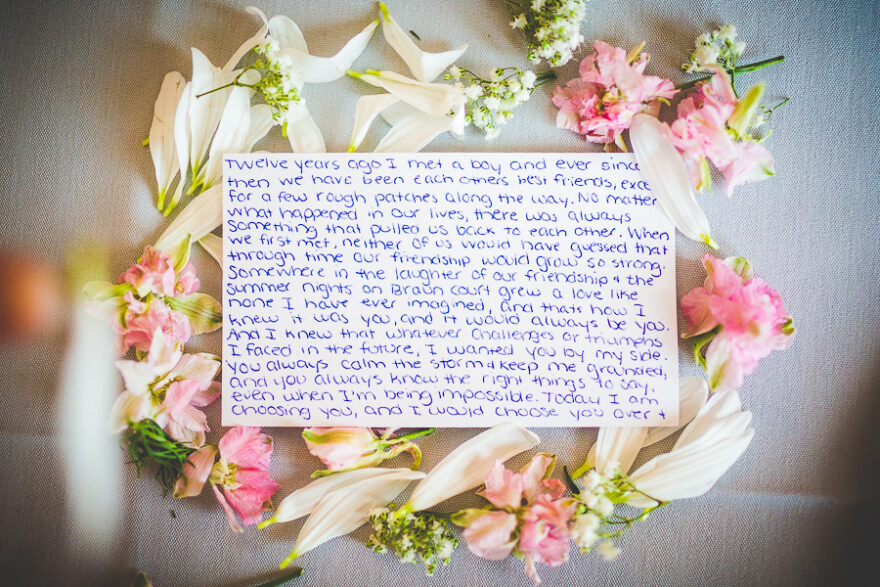 Twelve years ago I met a boy and ever since
then we have been each others best friends, exce
for a few rough patches along the way. No matter
what happened in our lives, there was always
something that pulled us back to each other. When
we first met, neither of us would have guessed that
through time our friendship would grow so strong.
Somewhere in the laughter of our friendship & the
summer nights on Braun court grew a love like
none I have ever imagined, and thats how I
knew it was you, and it would always be you.
And I knew that whatever challenges or triumphs
I faced in the future, I wanted you by my side.
You always calm the storm & keep me grounded,
and you always know the right things to say,
even when I'm being impossible. Today I am
choosing you, and I would choose you over &